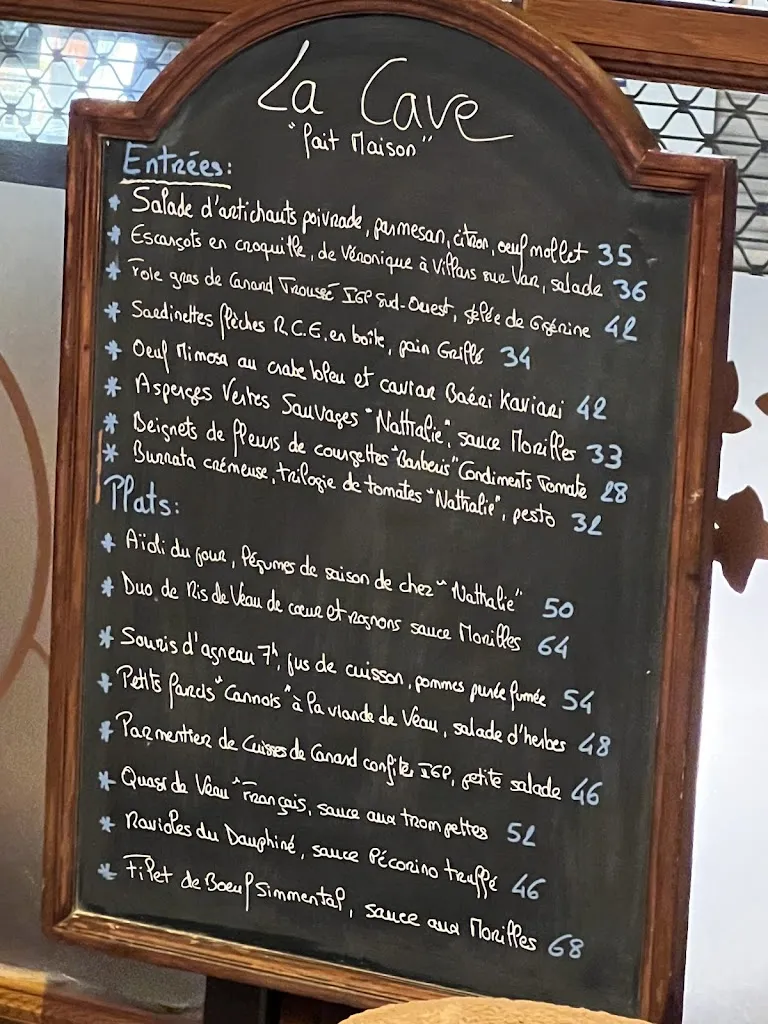 La Cave
"Fait Maison"
Entrées:
* Salade d'artichauts poivrade, parmesan, citron, oeuf mollet 35
* Escargots en croquille, de Véronique à Villars sur Var, salade 36
* Foie gras de Canard Trousse IGP Sud-Ouest, gelée de 42
* Sardinettes R.C.E, en boîte, pain Grillé 34
* Oeuf Mimosa au crabe bleu et caviar Baéri Kaviari 42
* Asperges Vertes Sauvages "Nathalie", sauce Morilles 33
* Beignets de fleurs de courgettes "Barberis" Condiments Tomate 28
* Burrata crémeuse, trilogie de tomates "Nathalie", pesto 32
Plats:
* Aïoli du jour, légumes de saison de chez "Nathalie" 50
* Duo de Ris de Veau de coeur et rognons sauce Morilles 64
* Souris d'agneau 7h, jus de cuisson, pommes purée fumée 54
* Petits farcis "Cannois" à la viande de Veau, salade d'herbes 48
* Parmentier de Cuisses de Canard confite IGP, petite salade 46
* Quasi de Veau Français, sauce aux trompettes 52
* Ravioles du Dauphiné, sauce Pécorino truffé 46
* Filet de Boeuf Simmental, sauce aux Morilles 68